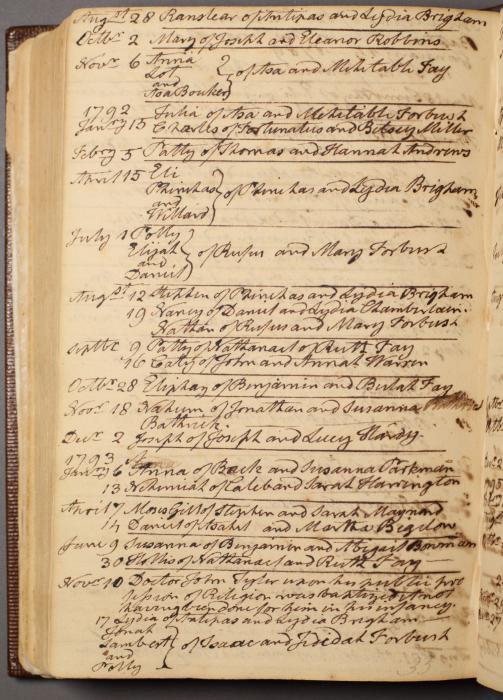 Augst 28 Ranslear of Antipas and Lydia Brigham
Octbr 2 Mary of Joseph and Eleanor Robbins
Novr 6 Anna
Lot
and
Asa Bouker } of Asa and Mehitable Fay
1792 Julia of Asa and Mehetable Forbush
Janry 15 Charles of Fortunatus and Betsey Miller
Febry 5 Patty of Thomas and Hannah Andrews
April 15 Eli
Phinehas
and
Willard } of Phinehas and Lydia Brigham
July 1 Polly
Elijah
and
Daniel } of Rufus and Mary Forbush
Augst 12 Stephen of Phinehas and Lydia Brigham
19 Nancy of Daniel and Lydia Chamberlain
Nathan of Rufus and Mary Forbush
Septbr 9 Patty of Nathanael of Ruth Fay
16 Caty of John and Annah Warren
Octbr 28 Eliphaz of Benjamin and Bulah Fay
Novr 18 Nahum of Jonathan and Susanna
Bathrick
Decr 2 Joseph of Joseph and Lucy Hardy
1793
Janry 6 Anna of Breck and Susanna Parkman
13 Nehemiah of Caleb and Sarah Harrington
April 7 Moses Gill of Stephen and Sarah Maynard
14 Daniel of Asahel and Martha Bigelow
June 9 Susanna of Benjamin and Abigail Bowman
30 of Nathanael and Ruth Fay
Novr 10 Doctor John Tyler upon his public pro
fession of Religion was baptized it not
having been done for him in his infancy.
17 Lydia of Antipas and Lydia Brigham
Jonah
Lambert
and
Polly } of Isaac and Jedidah Forbush